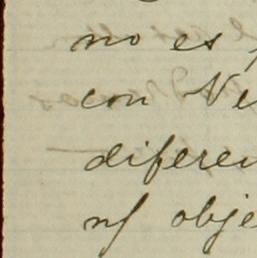 no es
con Ve
diferen
nf obje